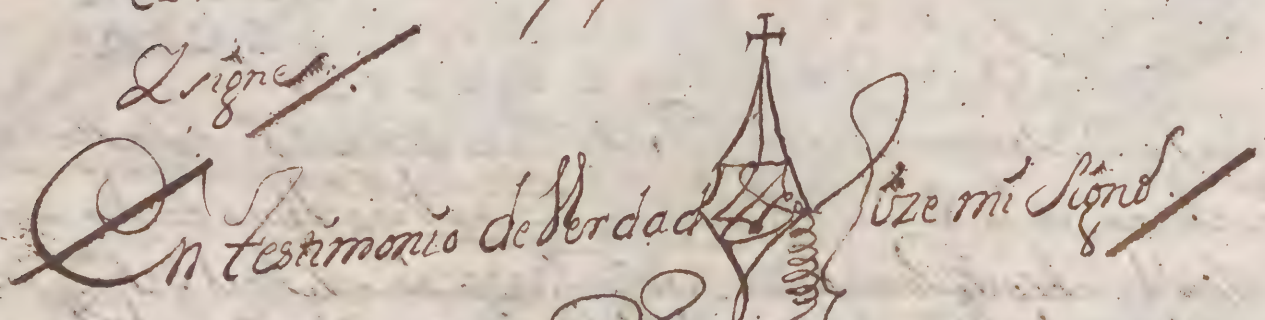 & signe
En testimonio de Verdad hize mi Signo